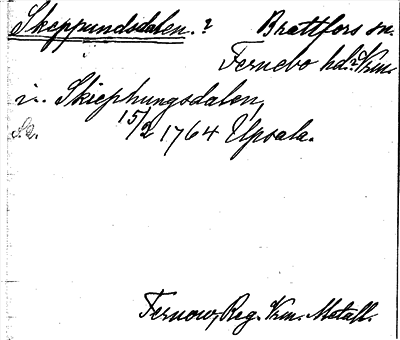 Skeppundsdalen.? Brattfors sn.
Fernebo hd. Vrm.
i. Skiephungsdalen,
15/2 1764 Upsala.
Fernow, Reg. Vrm. Metall.